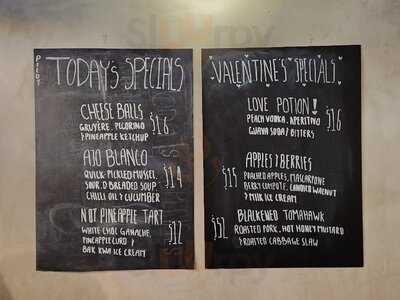 TODAY'S SPECIALS
CHEESE BALLS
GRUYERE, PECORINO
& PINEAPPLE KETCHUP
$16
AJO BLANCO
QUICK PICKLED MUSSEL
SOUR D BREADED SOUP
CHILLI OIL & CUCUMBER
$14
NOT PINEAPPLE TART
WHITE CHOC GANACHE,
PINEAPPLE CURD &
BAK KWA ICE CREAM
$12
VALENTINE'S SPECIALS
LOVE POTION!
PEACH VODKA, APERITIVO
GUAVA SODA / BITTERS
$16
APPLES & BERRIES
POACHED APPLES, MASCARPONE
BERRY COMPOTE, CANDIED WALNUT
& MILK ICE CREAM
$15
BLACKENED TOMAHAWK
ROASTED PORK, HOT HONEY MUSTARD
& ROASTED CABBAGE SLAW
$52